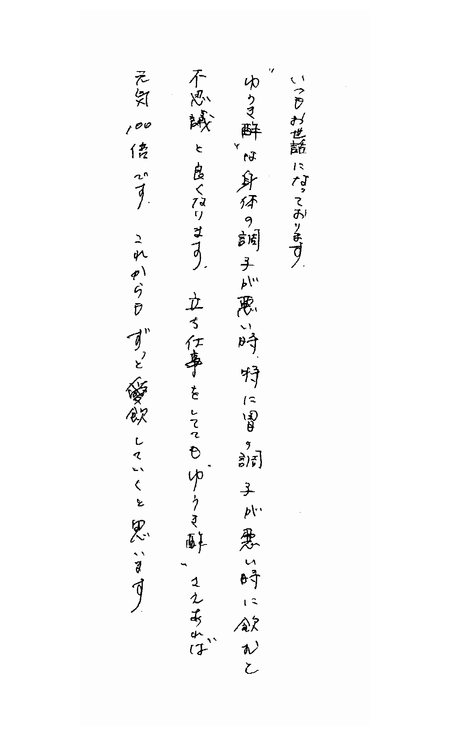 いつもお世話になっております。
"ゆうき酢"は身体の調子が悪い時、特に胃の調子が悪い時に飲むと
不思議と良くなります。立ち仕事をしてても"ゆうき酢"さえあれば
元気100倍です。これからもずっと愛飲していくと思います。